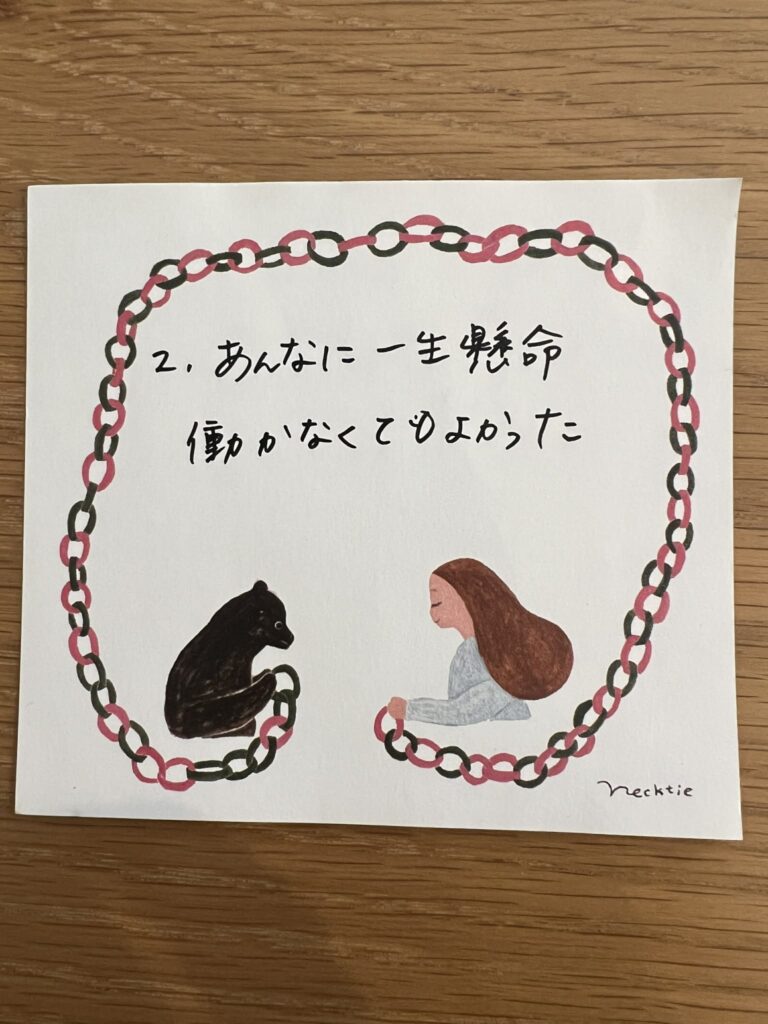 2. あんなに一生懸命
働かなくてもよかった
necktie